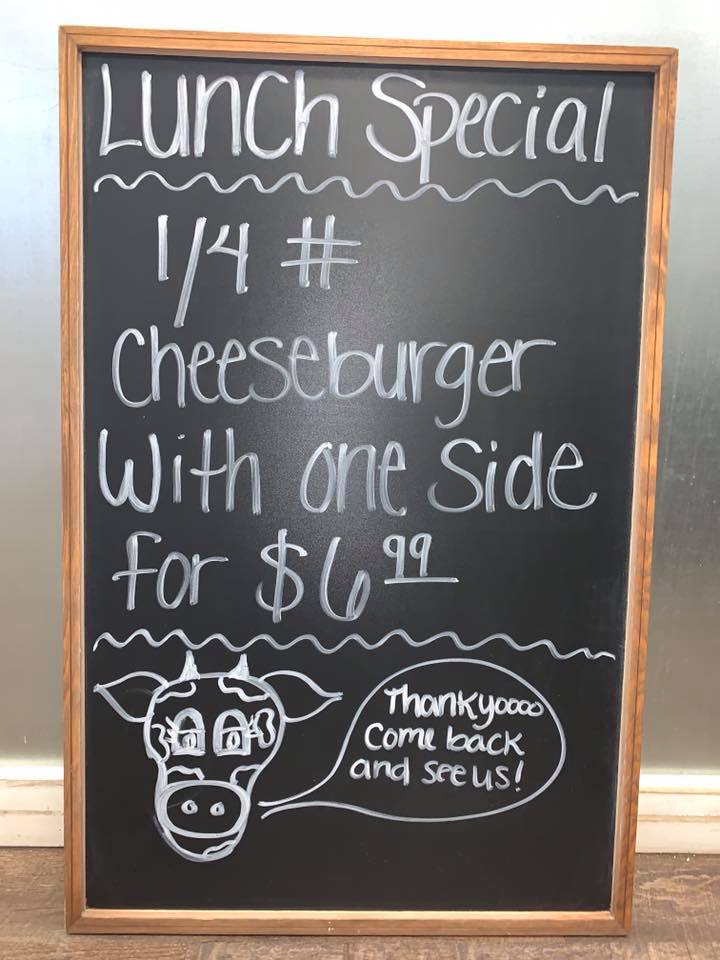 Lunch Special
1/4 #
Cheeseburger
With one Side
for $6 99
Thankyoooo
Come back
and see us!